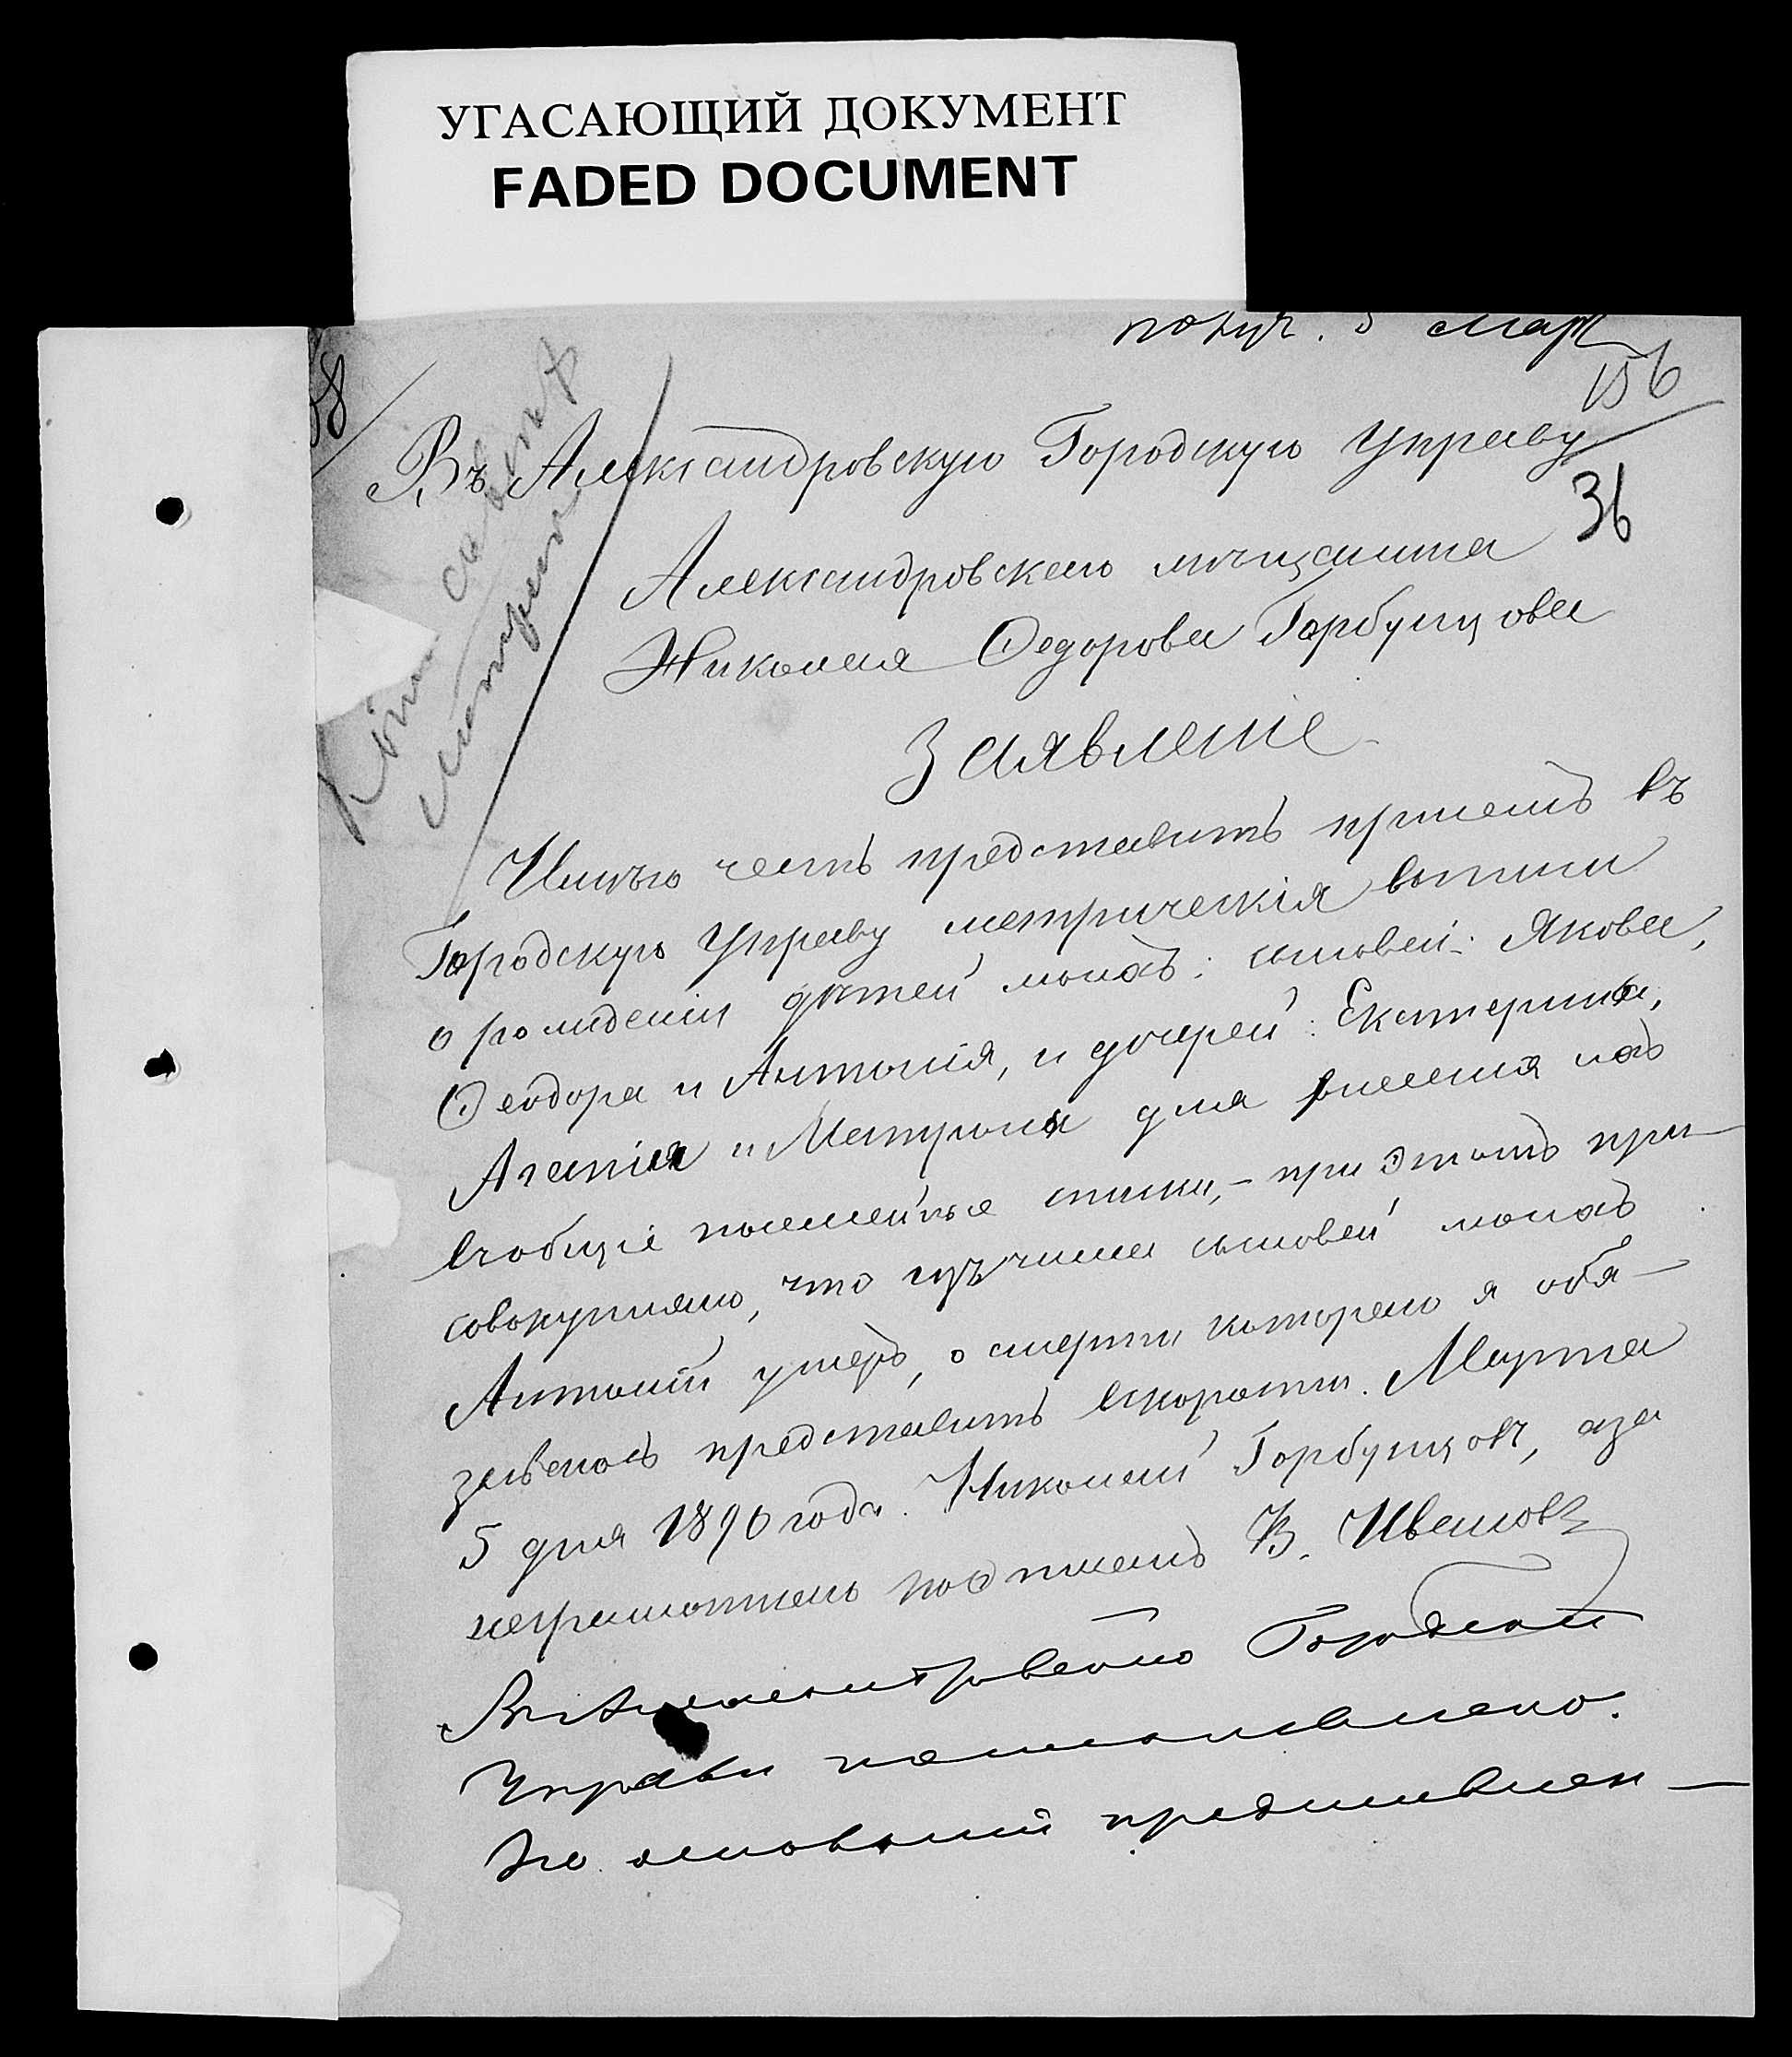 УГАСАЮЩИЙ ДОКУМЕНТ
FADED DOCUMENT
получ. 5 Мар
156
Въ Александровскую Городскую Управу
36
Александровскаго мѣщанина
Николая Ѳедорова Горбунцова
Заявленіе
Имѣю честь представить присемъ въ
Городскую Управу метрическія выписи
о рожденіи дѣтей моихъ: сыновей: Якова,
Ѳеодора и Антонія, и дочерей: Екатерины,
Агапіи и Матроны для внесенія ихъ
въ общіе посемейные списки, – при этомъ при–
совокупляю, что изъ числа сыновей моихъ
Антоній умеръ, о смерти котораго я обя–
зываюсь представить вскорости. Марта
5 дня 1890 года. Николай Горбунцовъ, а за
неграмотнаго подписалъ В. Ивановъ
Въ Александровской Городской
Управѣ постановлено:
На основаніи представлен–